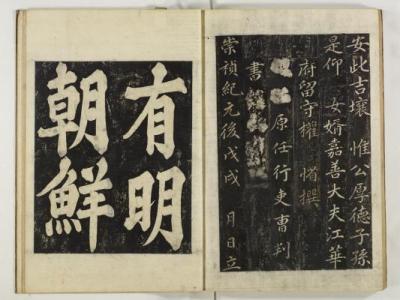 安此吉壤 惟公厚德子孫
是仰 女婿嘉善大夫江華
府留守權 撰
原任行吏曹判
書
崇禎紀元後戊戌 月日立
有明
朝鮮